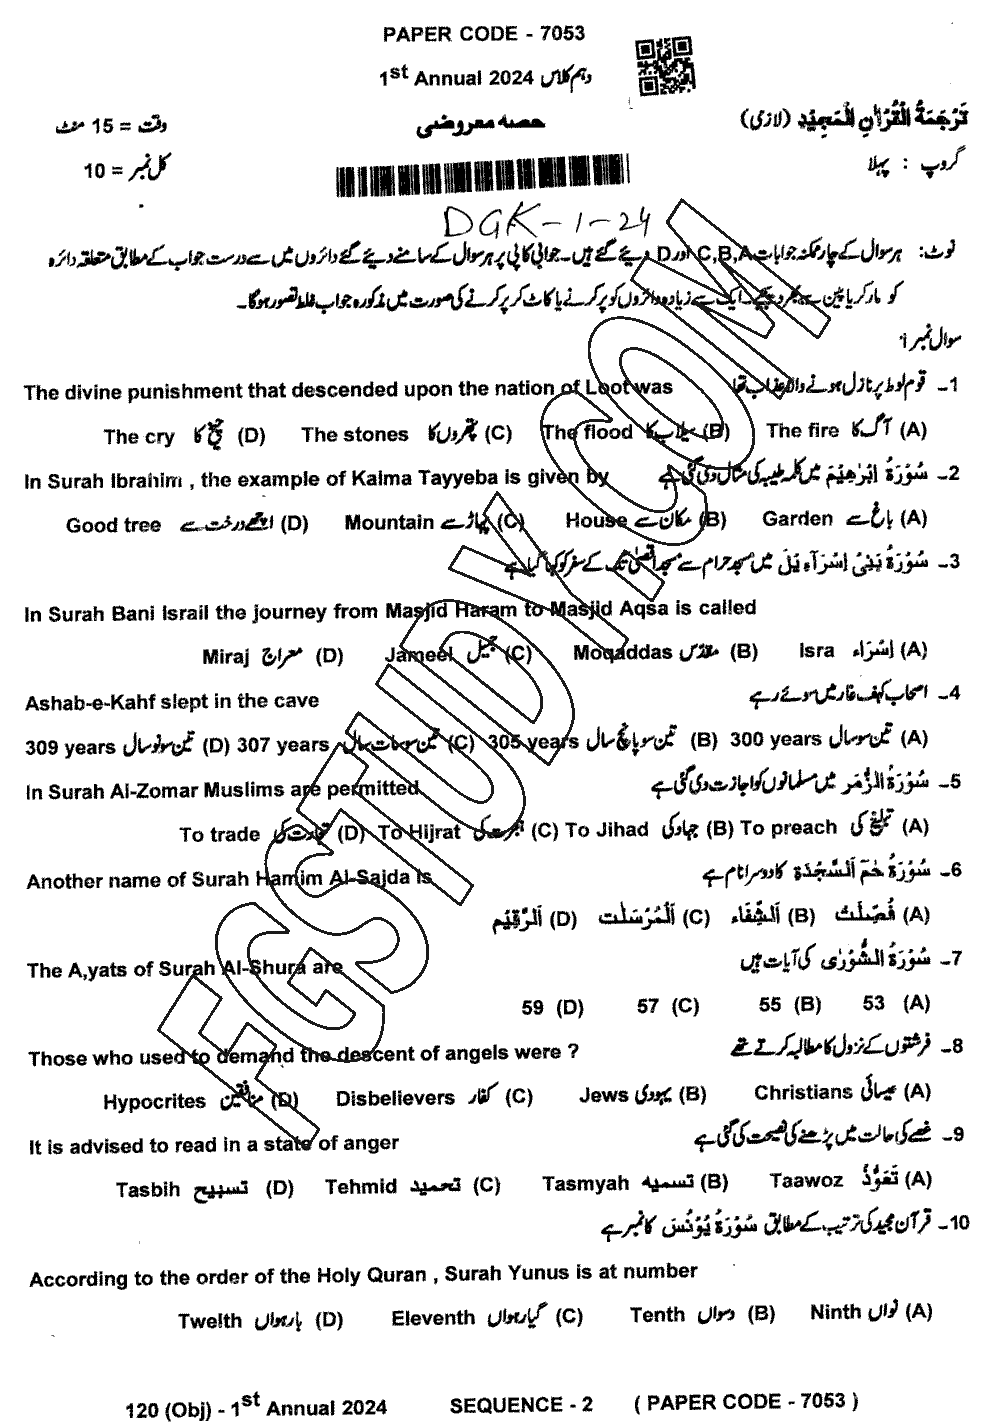 PAPER CODE - 7053
1st Annual 2024 دہم کلاس
وقت = 15 منٹ حصہ معروضی تَرْجَمَۃُ الْقُرْاٰنِ الْمَجِیْد (لازمی)
کل نمبر = 10 گروپ : پہلا
DGK-1-24
نوٹ: ہر سوال کے چار ممکنہ جوابات C,B,A اور D دیئے گئے ہیں۔ جوابی کاپی پر ہر سوال کے سامنے دیئے گئے دائروں میں سے درست جواب کے مطابق متعلقہ دائرہ
کو مارکر یا پین سے بھر دیجئے۔ ایک سے زیادہ دائروں کو پر کرنے یا کاٹ کر پر کرنے کی صورت میں مذکورہ جواب غلط تصور ہوگا۔
سوال نمبر 1
The divine punishment that descended upon the nation of Loot was 1۔ قوم لوط پر نازل ہونے والا عذاب تھا
The cry چیخ کا (D) The stones پتھروں کا (C) The flood سیلاب کا (B) The fire آگ کا (A)
In Surah Ibrahim , the example of Kalma Tayyeba is given by 2۔ سُوْرَۃُ اِبْرٰهِیْمَ میں کلمہ طیبہ کی مثال دی گئی ہے
Good tree اچھے درخت سے (D) Mountain پہاڑ سے (C) House مکان سے (B) Garden باغ سے (A)
3۔ سُوْرَۃُ بَنِیْ اِسْرَآءِیْلَ میں مسجد حرام سے مسجد اقصیٰ تک کے سفر کو کہا گیا ہے
In Surah Bani Israil the journey from Masjid Haram to Masjid Aqsa is called
Miraj معراج (D) Jameel جمیل (C) Moqaddas مقدّس (B) Isra اِسْرَاء (A)
Ashab-e-Kahf slept in the cave 4۔ اصحاب کہف غار میں سوئے رہے
309 years تین سو نو سال (D) 307 years تین سو سات سال (C) 305 years تین سو پانچ سال (B) 300 years تین سو سال (A)
In Surah Al-Zomar Muslims are permitted 5۔ سُوْرَۃُ الزُّمَر میں مسلمانوں کو اجازت دی گئی ہے
To trade تجارت کی (D) To Hijrat ہجرت کی (C) To Jihad جہاد کی (B) To preach تبلیغ کی (A)
Another name of Surah Hamim Al-Sajda is 6۔ سُوْرَۃُ حٰمٓ اَلسَّجْدَۃ کا دوسرا نام ہے
اَلرَّقِیْم (D) اَلْمُرْسَلٰت (C) اَلشِّفَاء (B) فُصِّلَتْ (A)
The A,yats of Surah Al-Shura are 7۔ سُوْرَۃُ الشُّوْرٰی کی آیات ہیں
59 (D) 57 (C) 55 (B) 53 (A)
Those who used to demand the descent of angels were ? 8۔ فرشتوں کے نزول کا مطالبہ کرتے تھے
Hypocrites منافقین (D) Disbelievers کفار (C) Jews یہودی (B) Christians عیسائی (A)
It is advised to read in a state of anger 9۔ غصے کی حالت میں پڑھنے کی نصیحت کی گئی ہے
Tasbih تسبیح (D) Tehmid تحمید (C) Tasmyah تسمیہ (B) Taawoz تَعَوُّذْ (A)
10۔ قرآن مجید کی ترتیب کے مطابق سُوْرَۃُ یُوْنُسَ کا نمبر ہے
According to the order of the Holy Quran , Surah Yunus is at number
Twelth بارہواں (D) Eleventh گیارہواں (C) Tenth دسواں (B) Ninth نواں (A)
120 (Obj) - 1st Annual 2024 SEQUENCE - 2 ( PAPER CODE - 7053 )
FGSTUDY.COM